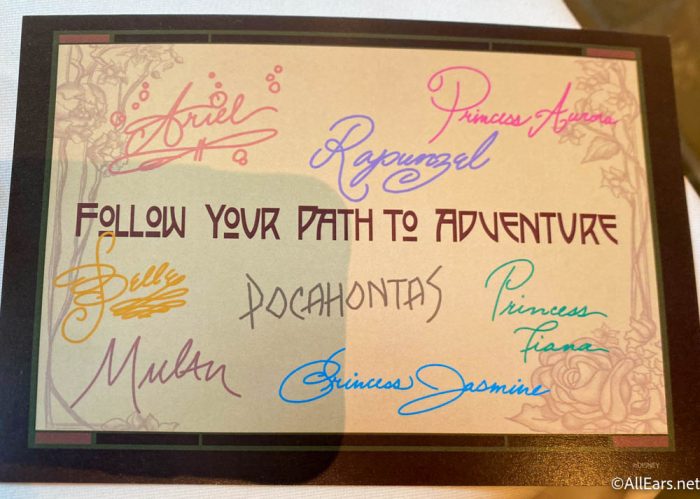 Ariel
Princess Aurora
Rapunzel
FOLLOW YOUR PATH TO ADVENTURE
Belle
POCAHONTAS
Princess
Tiana
Mulan
Princess Jasmine
©DISNEY
©AllEars.net